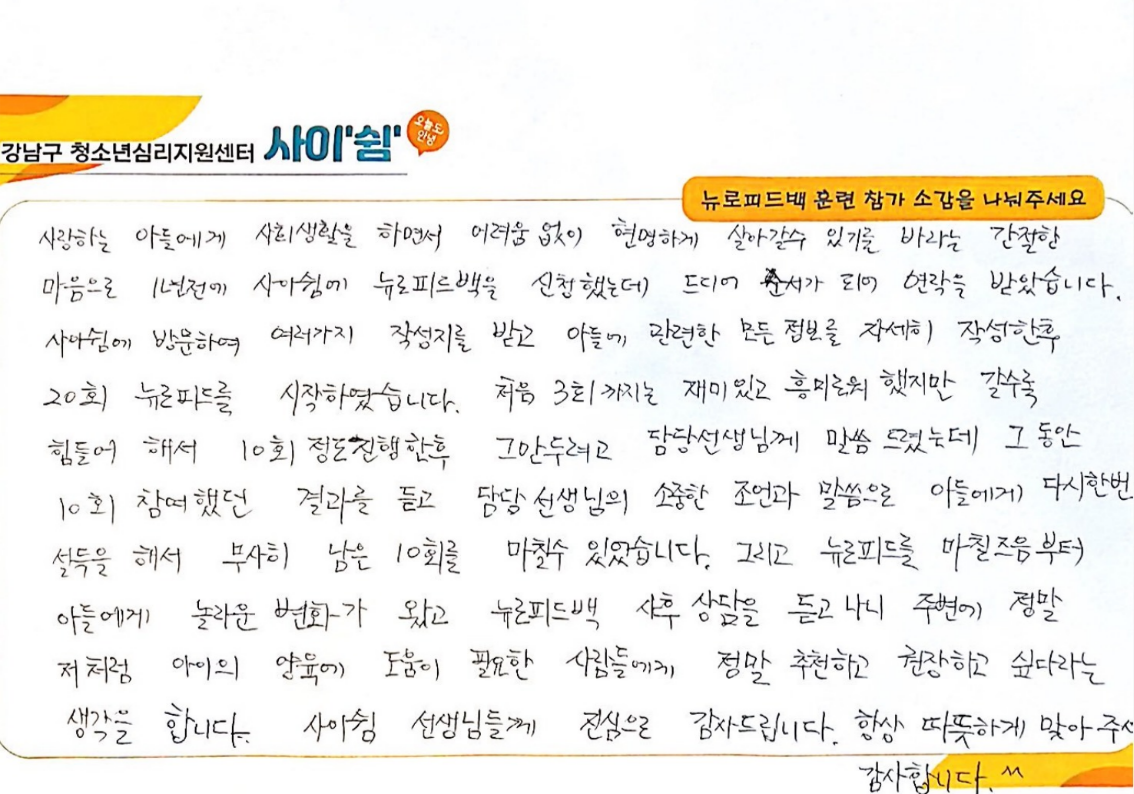 오늘도
안녕
강남구 청소년심리지원센터 사이'쉼'
뉴로피드백 훈련 참가 소감을 나눠주세요
사랑하는 아들에게 사회생활을 하면서 어려움 없이 현명하게 살아갈수 있기를 바라는 간절한
마음으로 1년전에 사아쉼에 뉴로피드백을 신청했는데 드디어 순서가 되어 연락을 받았습니다.
사아쉼에 방문하여 여러가지 작성지를 받고 아들에 관련한 모든 정보를 자세히 작성한후
20회 뉴로피드를 시작하였습니다. 처음 3회까지는 재미있고 흥미로워 했지만 갈수록
힘들어 해서 10회 정도 진행한후 그만두려고 담당선생님께 말씀 드렸는데 그 동안
10회 참여했던 결과를 듣고 담당 선생님의 소중한 조언과 말씀으로 아들에게 다시한번
설득을 해서 무사히 남은 10회를 마칠수 있었습니다. 그리고 뉴로피드를 마칠즈음부터
아들에게 놀라운 변화가 왔고 뉴로피드백 사후 상담을 듣고 나니 주변에 정말
저처럼 아이의 양육에 도움이 필요한 사람들에게 정말 추천하고 권장하고 싶다라는
생각을 합니다. 사아쉼 선생님들께 진심으로 감사드립니다. 항상 따뜻하게 맞아 주셔
감사합니다. ^^